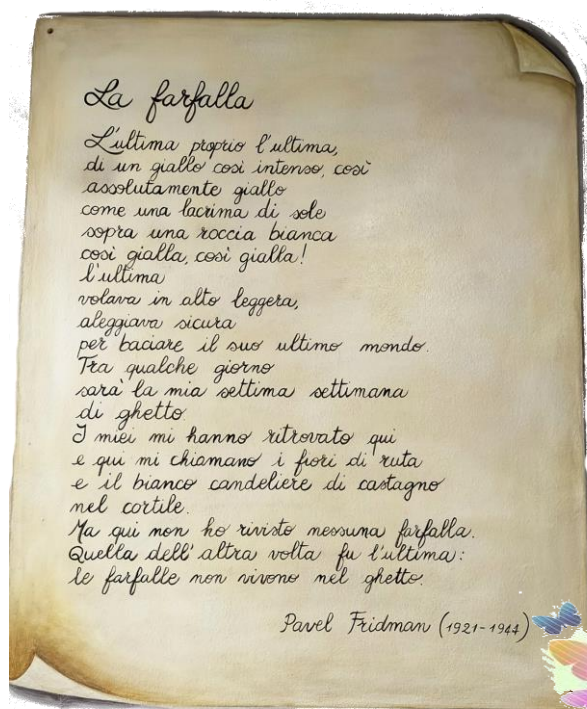 La farfalla
L'ultima proprio l'ultima,
di un giallo così intenso, così
assolutamente giallo
come una lacrima di sole
sopra una roccia bianca
così gialla, così gialla!
l'ultima
volava in alto leggera,
aleggiava sicura
per baciare il suo ultimo mondo.
Tra qualche giorno
sarà la mia settima settimana
di ghetto.
I miei mi hanno ritrovato qui
e qui mi chiamano i fiori di ruta
e il bianco candeliere di castagno
nel cortile.
Ma qui non ho rivisto nessuna farfalla.
Quella dell'altra volta fu l'ultima:
le farfalle non vivono nel ghetto.
Pavel Fridman (1921-1944)